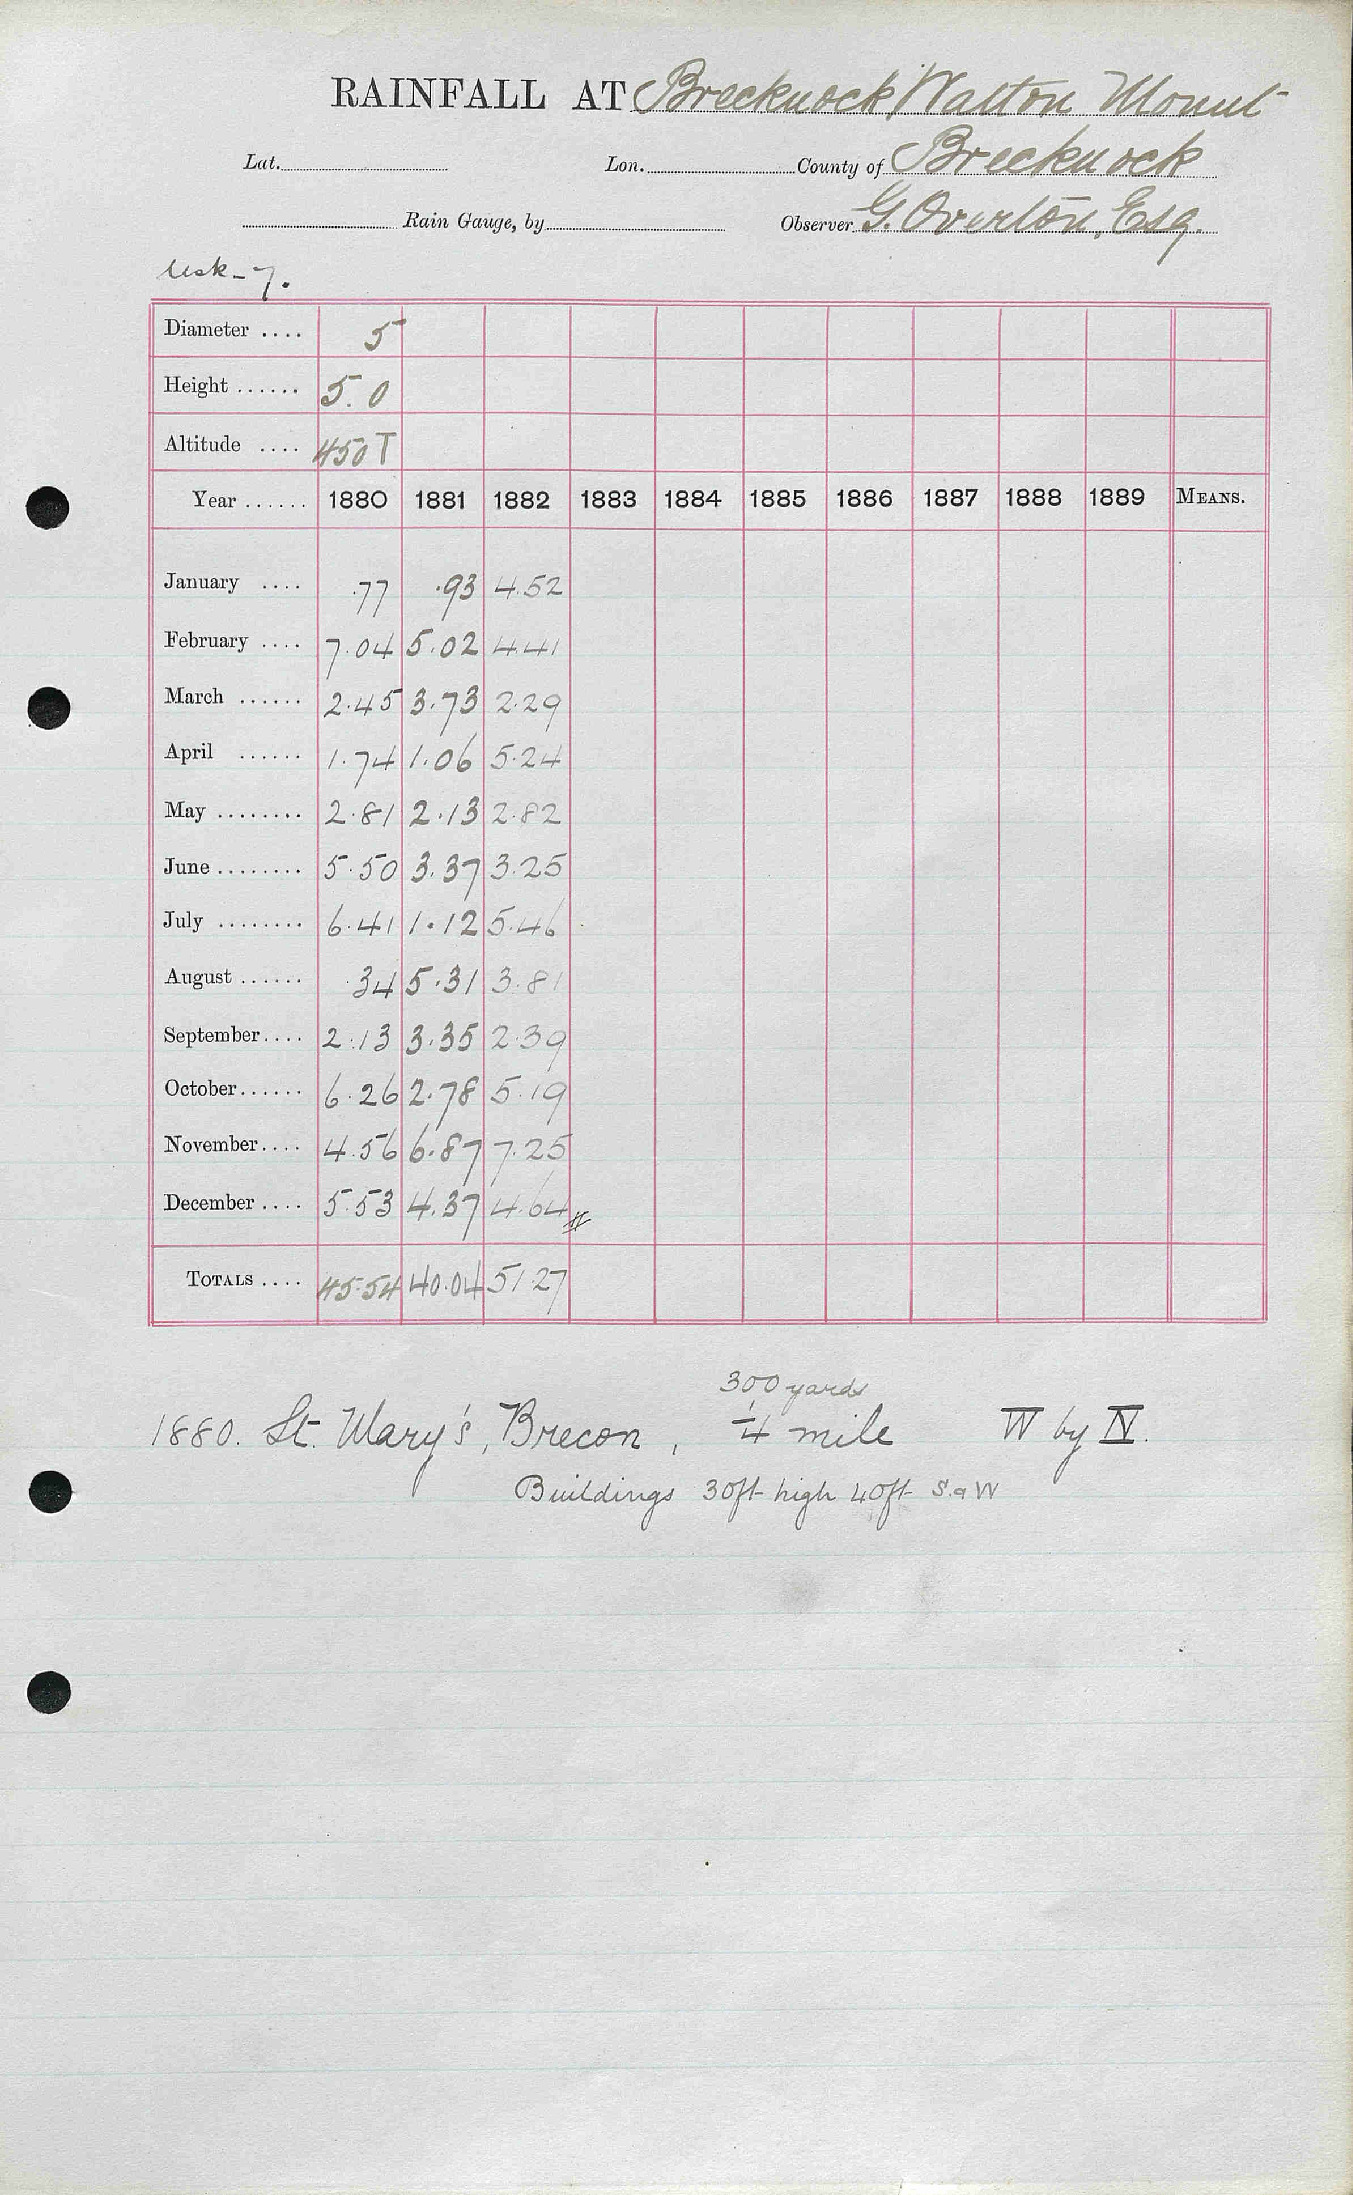 RAINFALL AT Brecknock Watton Mount
Lat. Lon. County of Brecknock
Rain Gauge, by Observer G. Overton, Esq.
Usk-7.
Diameter .... 5
Height ...... 5.0
Altitude .... 450T
Year ...... 1880 1881 1882 1883 1884 1885 1886 1887 1888 1889 MEANS.
January .... .77 .93 4.52
February .... 7.04 5.02 4.41
March ...... 2.45 3.73 2.29
April ...... 1.74 1.06 5.24
May ........ 2.81 2.13 2.82
June ........ 5.50 3.37 3.25
July ........ 6.41 1.12 5.46
August ...... .34 5.31 3.81
September .... 2.13 3.35 2.39
October ...... 6.26 2.78 5.19
November .... 4.56 6.87 7.25
December .... 5.53 4.37 4.64
TOTALS .... 45.54 40.04 51.27
300 yards
1880. St. Mary's, Brecon, 1/4 mile W by N.
Buildings 30ft high 40ft S.a W